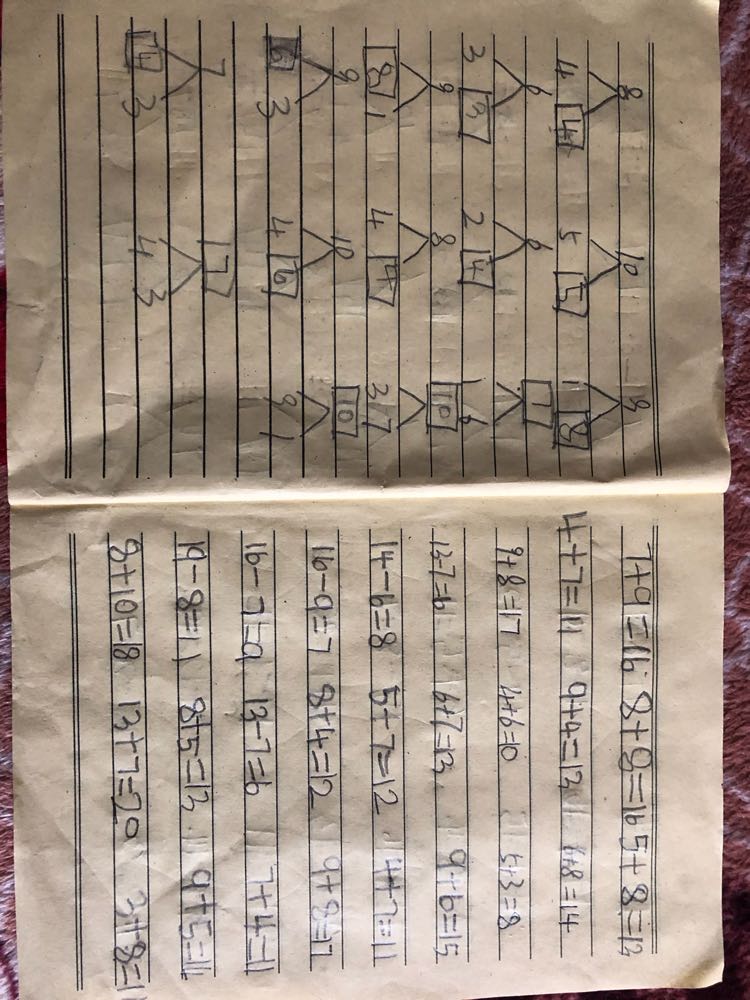 8 10 9
4 4 5 5 1 8
6 6 7
3 3 2 4 1 6
9 8 10
8 1 4 4 3 7
9 10 10
6 3 4 6 9 1
7 7
4 3 4 3
7+9=16 8+8=16 5+8=13
4+7=11 9+4=13 6+8=14
9+8=17 4+6=10 5+3=8
13-7=6 6+7=13 9+6=15
14-6=8 5+7=12 4+7=11
16-9=7 8+4=12 9+8=17
16-7=9 13-7=6 7+4=11
19-8=11 8+5=13 9+5=14
8+10=18 13+7=20 3+8=11